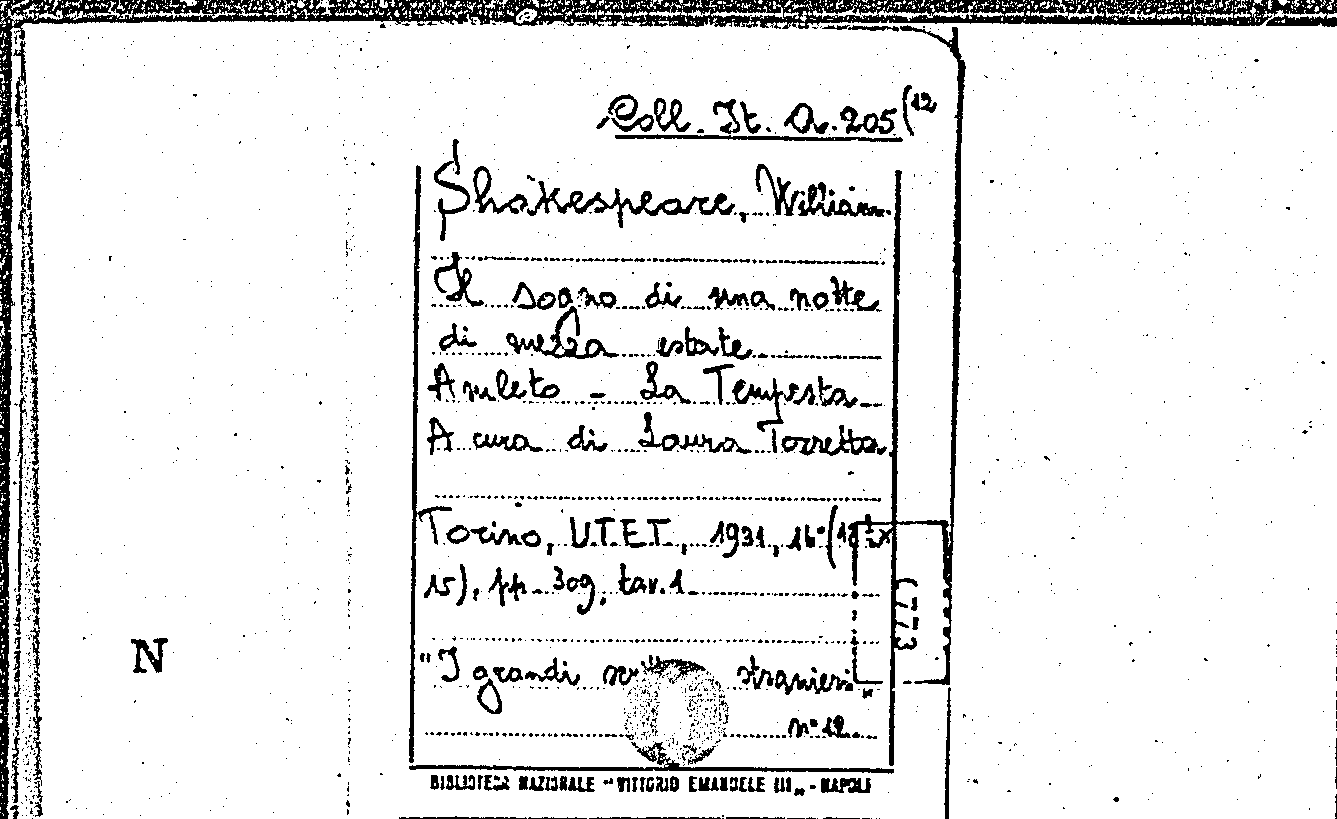 Coll. It. A. 205 (12
Shakespeare, William
Il sogno di una notte
di mezza estate
Amleto - La Tempesta -
A cura di Laura Torretta
Torino, U.T.E.T., 1931, 16° (18 ½ x
15), pp. 309, tav. 1
"I grandi stranieri„
n° 12
(773
N
BIBLIOTECA NAZIONALE "VITTORIO EMANUELE III„ - NAPOLI